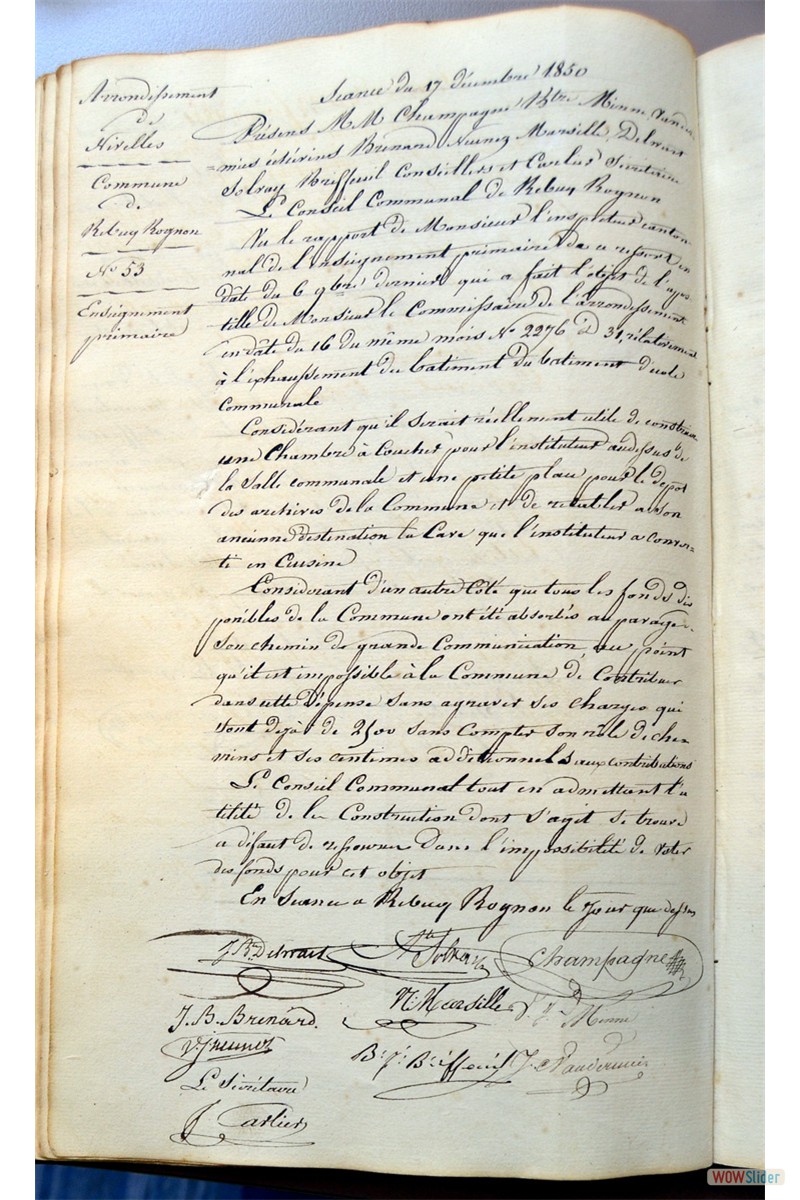 Arrondissement
de
Nivelles
Commune
de
Rebecq Rognon
No 53
Enseignement
primaire
Séance du 17 décembre 1850
Présens MM Champagne Bgtre Minne, Vander
=mies échévins Brénard Neunez Marsille, Delwart
Solvay Briffeuil Conseillers et Carlier Secrétaire
Le Conseil Communal de Rebecq Rognon
Vu le rapport de Monsieur l'inspecteur canto-
nal de l'enseignement primaire de ce ressort en
date du 6 9bre dernier qui a fait l'objet de l'apos
tille de Monsieur le Commissaire de l'arrondissement
en date du 16 du même mois No 2276 D 31, rélativement
à l'exhaussement du batiment du batiment d'école
communale
Considérant qu'il serait réellement utile de construire
une Chambre à Coucher pour l'instituteur audessus de
la Salle communale et une petite place pour le dépot
des archives de la Commune et de rétablir a son
ancienne destination la Cave que l'instituteur a conver-
ti en Cuisine
Considérant d'un autre Côté que tous les fonds dis
ponibles de la Commune ont été absorbés au pavage
Son chemin de grande Communication, au point
qu'il est impossible à la Commune de Contribuer
dans cette dépense sans agraver ses charges qui
sont dejà de 2500 sans Compter son rôle de che
mins et ses centimes additionnels aux contributions
Le Conseil Communal tout en admettant l'u
tilité de la Construction dont s'agit se trouve
a défaut de ressource dans l'impossibilité de voter
des fonds pour cet objet
En Séance a Rebecq Rognon le Jour que dessus
J Bte Delwart
Solvay
Champagne
J. B. Brénard.
N. Marsille
Minne
V. J Neunez
B. J. Briffeuil
J. Vandermies
Le Sécrétaire
J Carlier
WOWSlider